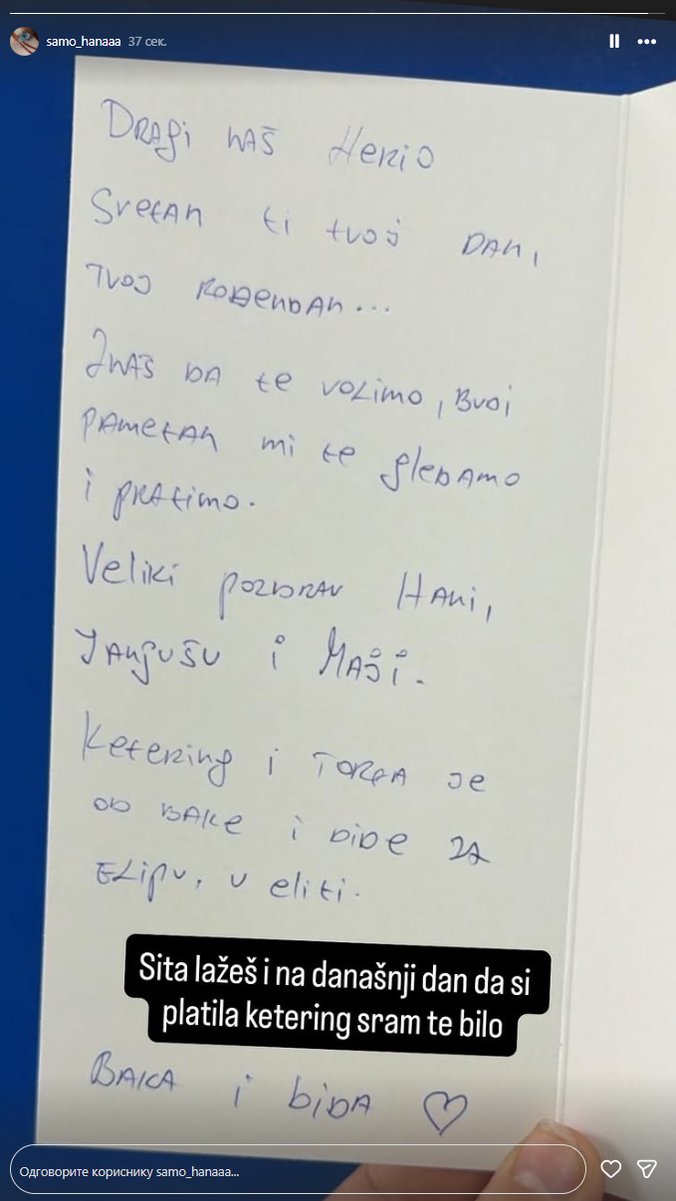 samo_hanaaa 37 сек.
Dragi naš Herio
Sretan ti tvoj dan,
tvoj rođendan...
Znaš da te volimo, budi
pametan mi te gledamo
i pratimo.
Veliki pozdrav Hani,
Janjušu i Maji.
Ketering i torta je
od bake i dide za
Elipu, u eliti.
Sita lažeš i na današnji dan da si
platila ketering sram te bilo
Baka i dida
Одговорите кориснику samo_hanaaa...